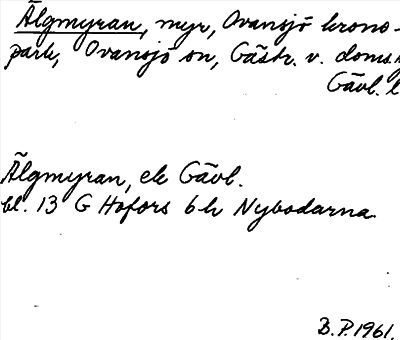 Älgmyran, myr, Ovansjö krono-
park, Ovansjö sn, Gästr. v. doms.
Gävl. l
Älgmyran, ek Gävl.
bl. 13 G Hofors 6 h Nybodarna
B.P. 1961.